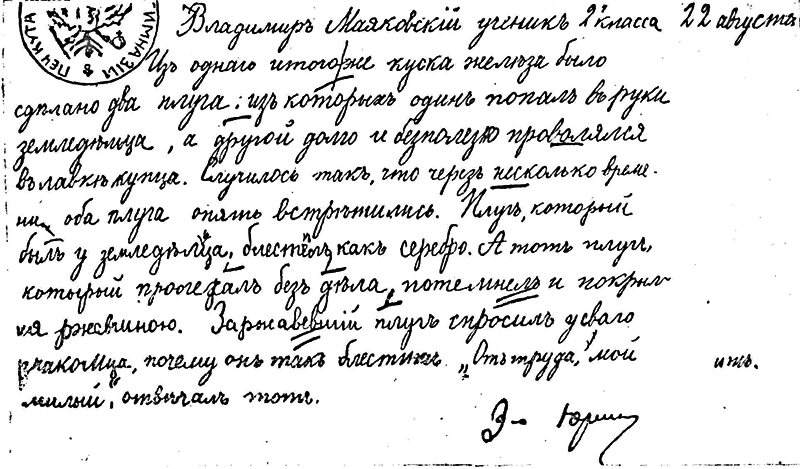 ГИМНАЗІИ
Владимиръ Маяковскій ученикъ 2 класса 22 августа
Изъ однаго итогоже куска желѣза было
сдѣлано два плуга: изъ которыхъ одинъ попалъ въ руки
земледѣльца, а другой долго и безполезно провалялся
въ лавкѣ купца. Случилось такъ, что черезъ несколько време-
ни оба плуга опять встрѣтились. Плугъ, который
былъ у земледѣльца, блестѣлъ какъ серебро. А тотъ плугъ,
который пролежалъ безъ дѣла, потемнелъ и покрыл-
ся ржавчиною. Заржавевшій плугъ спросилъ у сваго
знакомца, почему онъ такъ блеститъ. „Отъ труда, мой
милый", отвѣчалъ тотъ.
3-